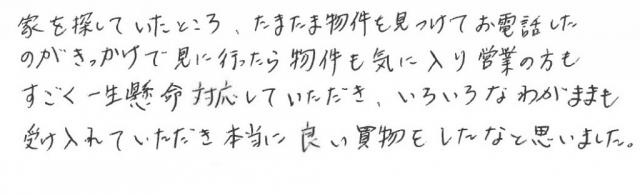 家を探していたところ、たまたま物件を見つけてお電話した
のがきっかけで見に行ったら物件も気に入り営業の方も
すごく一生懸命対応していただき、いろいろなわがままも
受け入れていただき本当に良い買物をしたなと思いました。